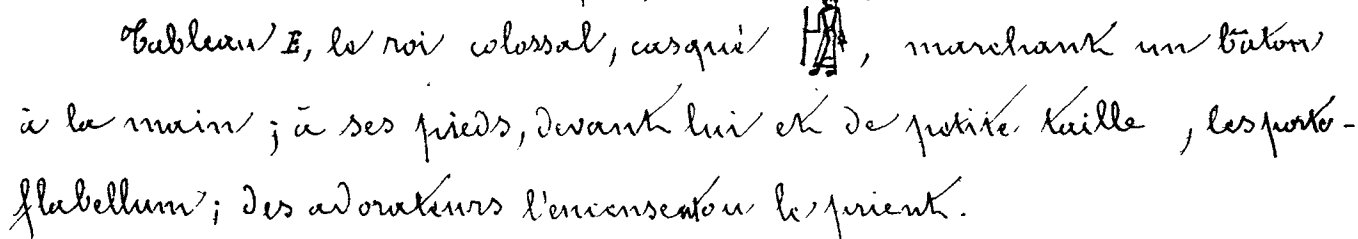 Tableau E, le roi colossal, casqué , marchant un bâton
à la main ; à ses pieds, devant lui et de petite taille , les porte-
flabellum ; des adorateurs l'encensent ou le prient.